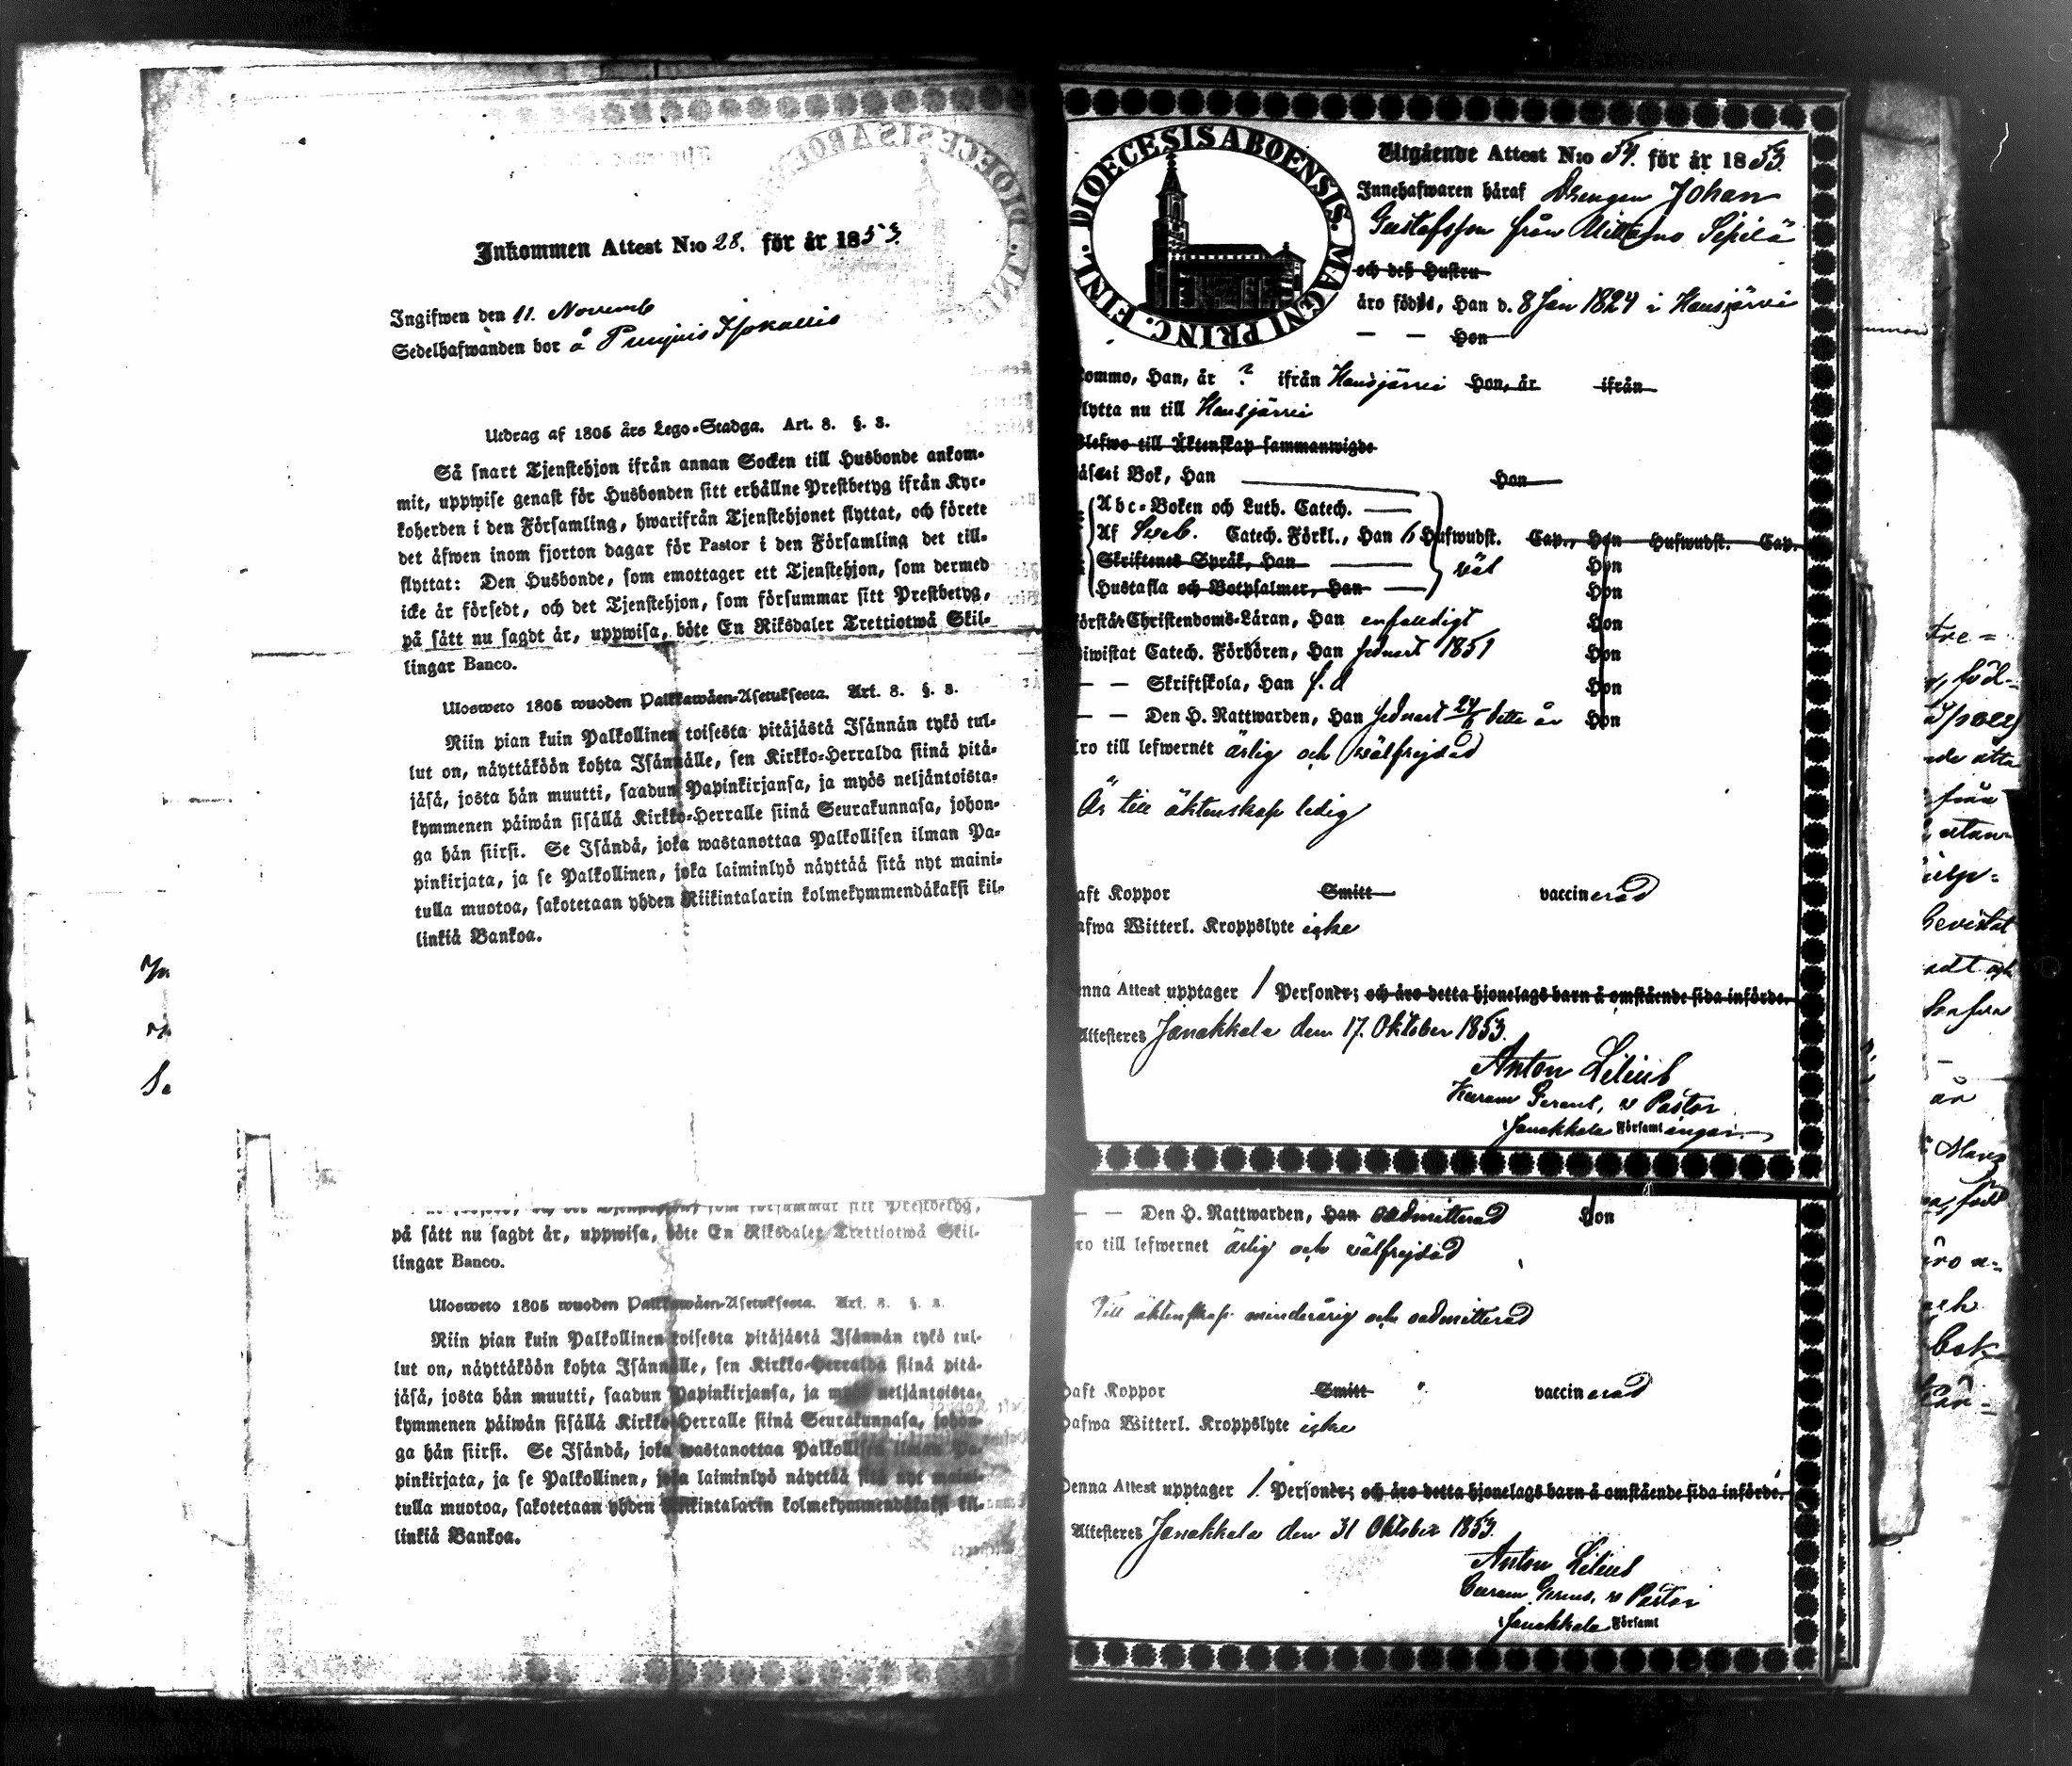 Inkommen Attest N:o 28. för år 1853.
Ingifwen den 11. Novemb
Sedelhafwanden bor å
Utdrag af 1805 års Lego-Stadga. Art. 8. §. 3.
Så snart Tjenstehjon ifrån annan Socken till Husbonde ankom-
mit, uppwise genast för Husbonden sitt erhållne Prestbetyg ifrån Kyr-
koherden i den Församling, hwarifrån Tjenstehjonet flyttat, och förete
det äfwen inom fjorton dagar för Pastor i den Församling det till-
flyttat: Den Husbonde, som emottager ett Tjenstehjon, som dermed
icke är försedt, och det Tjenstehjon, som försummar sitt Prestbetyg,
på sätt nu sagdt är, uppwisa, böte En Riksdaler Trettiotwå Skil-
lingar Banco.
Ulosweto 1805 wuoden Palkkawäen-Asetuksesta. Art. 8. §. 3.
Niin pian kuin Palkollinen toisesta pitäjästä Isännän tykö tul-
lut on, näyttäköön kohta Isännälle, sen Kirkko-Herralda siinä pitä-
jäsä, josta hän muutti, saadun Papinkirjansa, ja myös neljäntoista-
kymmenen päiwän sisällä Kirkko-Herralle siinä Seurakunnasa, johon-
ga hän siirsi. Se Isändä, joka wastanottaa Palkollisen ilman Pa-
pinkirjata, ja se Palkollinen, joka laiminlyö näyttää sitä nyt maini-
tulla muotoa, sakotetaan yhden Riikintalarin kolmekymmendäkaksi kil-
linkiä Bankoa.
som försummar sitt Prestbetyg,
på sätt nu sagdt är, uppwisa, böte En Riksdaler Trettiotwå Skil-
lingar Banco.
Ulosweto 1805 wuoden Palkkawäen-Asetuksesta. Art. 8. §. 3.
Niin pian kuin Palkollinen toisesta pitäjästä Isännän tykö tul-
lut on, näyttäköön kohta Isännälle, sen Kirkko-Herralda siinä pitä-
jäsä, josta hän muutti, saadun Papinkirjansa, ja myös neljäntoista-
kymmenen päiwän sisällä Kirkko-Herralle siinä Seurakunnasa, johon-
ga hän siirsi. Se Isändä, joka wastanottaa Palkollisen ilman Pa-
pinkirjata, ja se Palkollinen, joka laiminlyö näyttää sitä nyt maini-
tulla muotoa, sakotetaan yhden Riikintalarin kolmekymmendäkaksi kil-
linkiä Bankoa.
DIOECESIS ABOENSIS. MAGNI PRINC. FINL.
Utgående Attest N:o 54. för år 1853.
Innehafwaren häraf Drengen Johan
Gustafsson från Sipilä
och deß Hustru
äro födde, Han d. 8 Jan 1824 i Hausjärvi
— — Hon
kommo, Han, år ? ifrån Hausjärvi Hon, år ifrån
flytta nu till Hausjärvi
Blefwo till Äktenskap sammanwigde
läsa i Bok, Han Hon
Abc-Boken och Luth. Catech.
Af Sveb. Catech. Förkl., Han 6 Hufwudst. Cap., Hon Hufwudst. Cap.
Skriftenes Språk, Han väl Hon
Hustafla och Botpsalmer, Han Hon
förstår Christendoms-Läran, Han enfaldigt Hon
biwistat Catech. Förhören, Han sednast 1851 Hon
— — Skriftskola, Han s. d Hon
— — Den H. Nattwarden, Han sednast 24/6 dette år Hon
äro till lefwernet ärlig och välfrejdad
Är till äktenskap ledig
haft Koppor Smitt vaccinerad
hafwa Witterl. Kroppslyte icke
Denna Attest upptager 1 Personer; och äro detta hjonelags barn å omstående sida införde.
Attesteres Janakkala den 17. Oktober 1853.
Anton Lilius
Curam Gerens, v Pastor
i Janakkala Församlingar.
— — Den H. Nattwarden, Han oadmitterad Hon
äro till lefwernet ärlig och välfrejdad
Till äktenskap minderårig och oadmitterad
haft Koppor Smitt vaccinerad
hafwa Witterl. Kroppslyte icke
Denna Attest upptager 1 Personer; och äro detta hjonelags barn å omstående sida införde.
Attesteres Janakkala den 31 Oktober 1853.
Anton Lilius
Curam Gerens, v Pastor
i Janakkala Församl